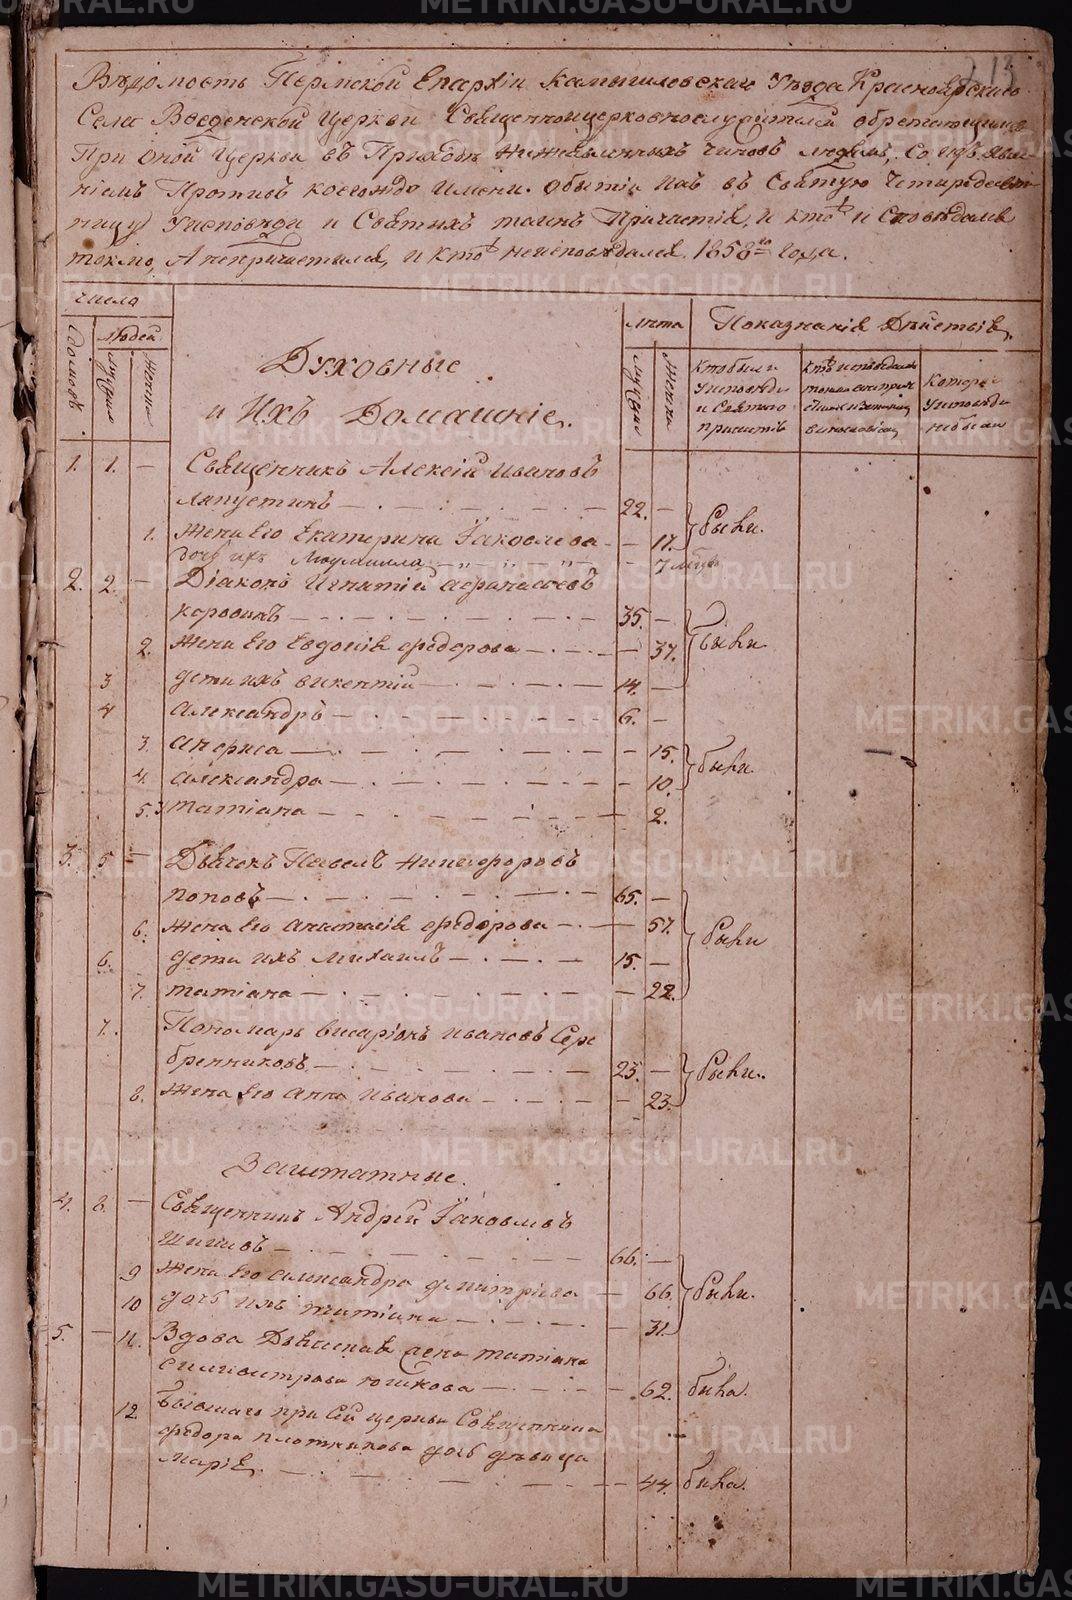 213
Вѣдомость Пермской Епархіи Камышловскаго Уѣзда Красноярскаго
Села Введенской Церкви Священноицерковнослужителей обретающихся
При оной Церкви въ Приходѣ нижеявленныхъ чиновъ людемъ, Со изъявле-
ніемъ Противъ коегождо имени. о бытіи ихъ въ Святую Четыредесят-
ницу Уисповѣди и Святыхъ таинъ Причастія, и кто и Сповѣдался
токмо, А непричастился, и кто неисповѣдался. 1858го Года.
Числа
домовъ
людей
мужеска
женска
Духовные
и Ихъ Домашніе.
лѣта
мужес
женска
Показаніе Дѣйствія
Кто были Уисповѣди и Святаго причастія
Которые Уисповѣди небыли
1. 1. — Священникъ Алексѣй Ивановъ
Ляпустинъ — 22. —
1. Жена Его Екатерина Іаковлева — 17. были.
дочь ихъ Людмилла — 7 мѣсяц
2. 2. — Діаконъ Игнатій Афанасьевъ
Коровинъ — 35. —
2. Жена Его Евдокія Федорова — 37. были
3 дети ихъ Викентій — 14. —
4 Александръ — 6. —
3. Анфиса — 15. были
4. Александра — 10.
5. Татіана — 2.
3. 5 — Дьячекъ Павелъ Никифоровъ
Поповъ — 65. —
6. Жена Его Анастасія Федорова — 57. были
6. дети ихъ Михаилъ — 15. —
7. Татіана — 22.
7. Пономарь Висаріонъ Ивановъ Сере
бренниковъ — 23. — были.
8. Жена Его Анна Иванова — 23.
Заштатные.
4. 8. — Священникъ Андрей Іаковлевъ
Шишевъ — 66. —
9 Жена Его Александра Дмитріева — 66. были.
10 дочь ихъ Татіана — 31.
5. — 11. Вдова Дьяческая жена Татіана
Силиострова Юшкова — 62. была.
12. Бывшаго при Сей церкви Священника
Федора Плотникова дочь дѣвица
Марія — 44. была.
METRIKI.GASO-URAL.RU